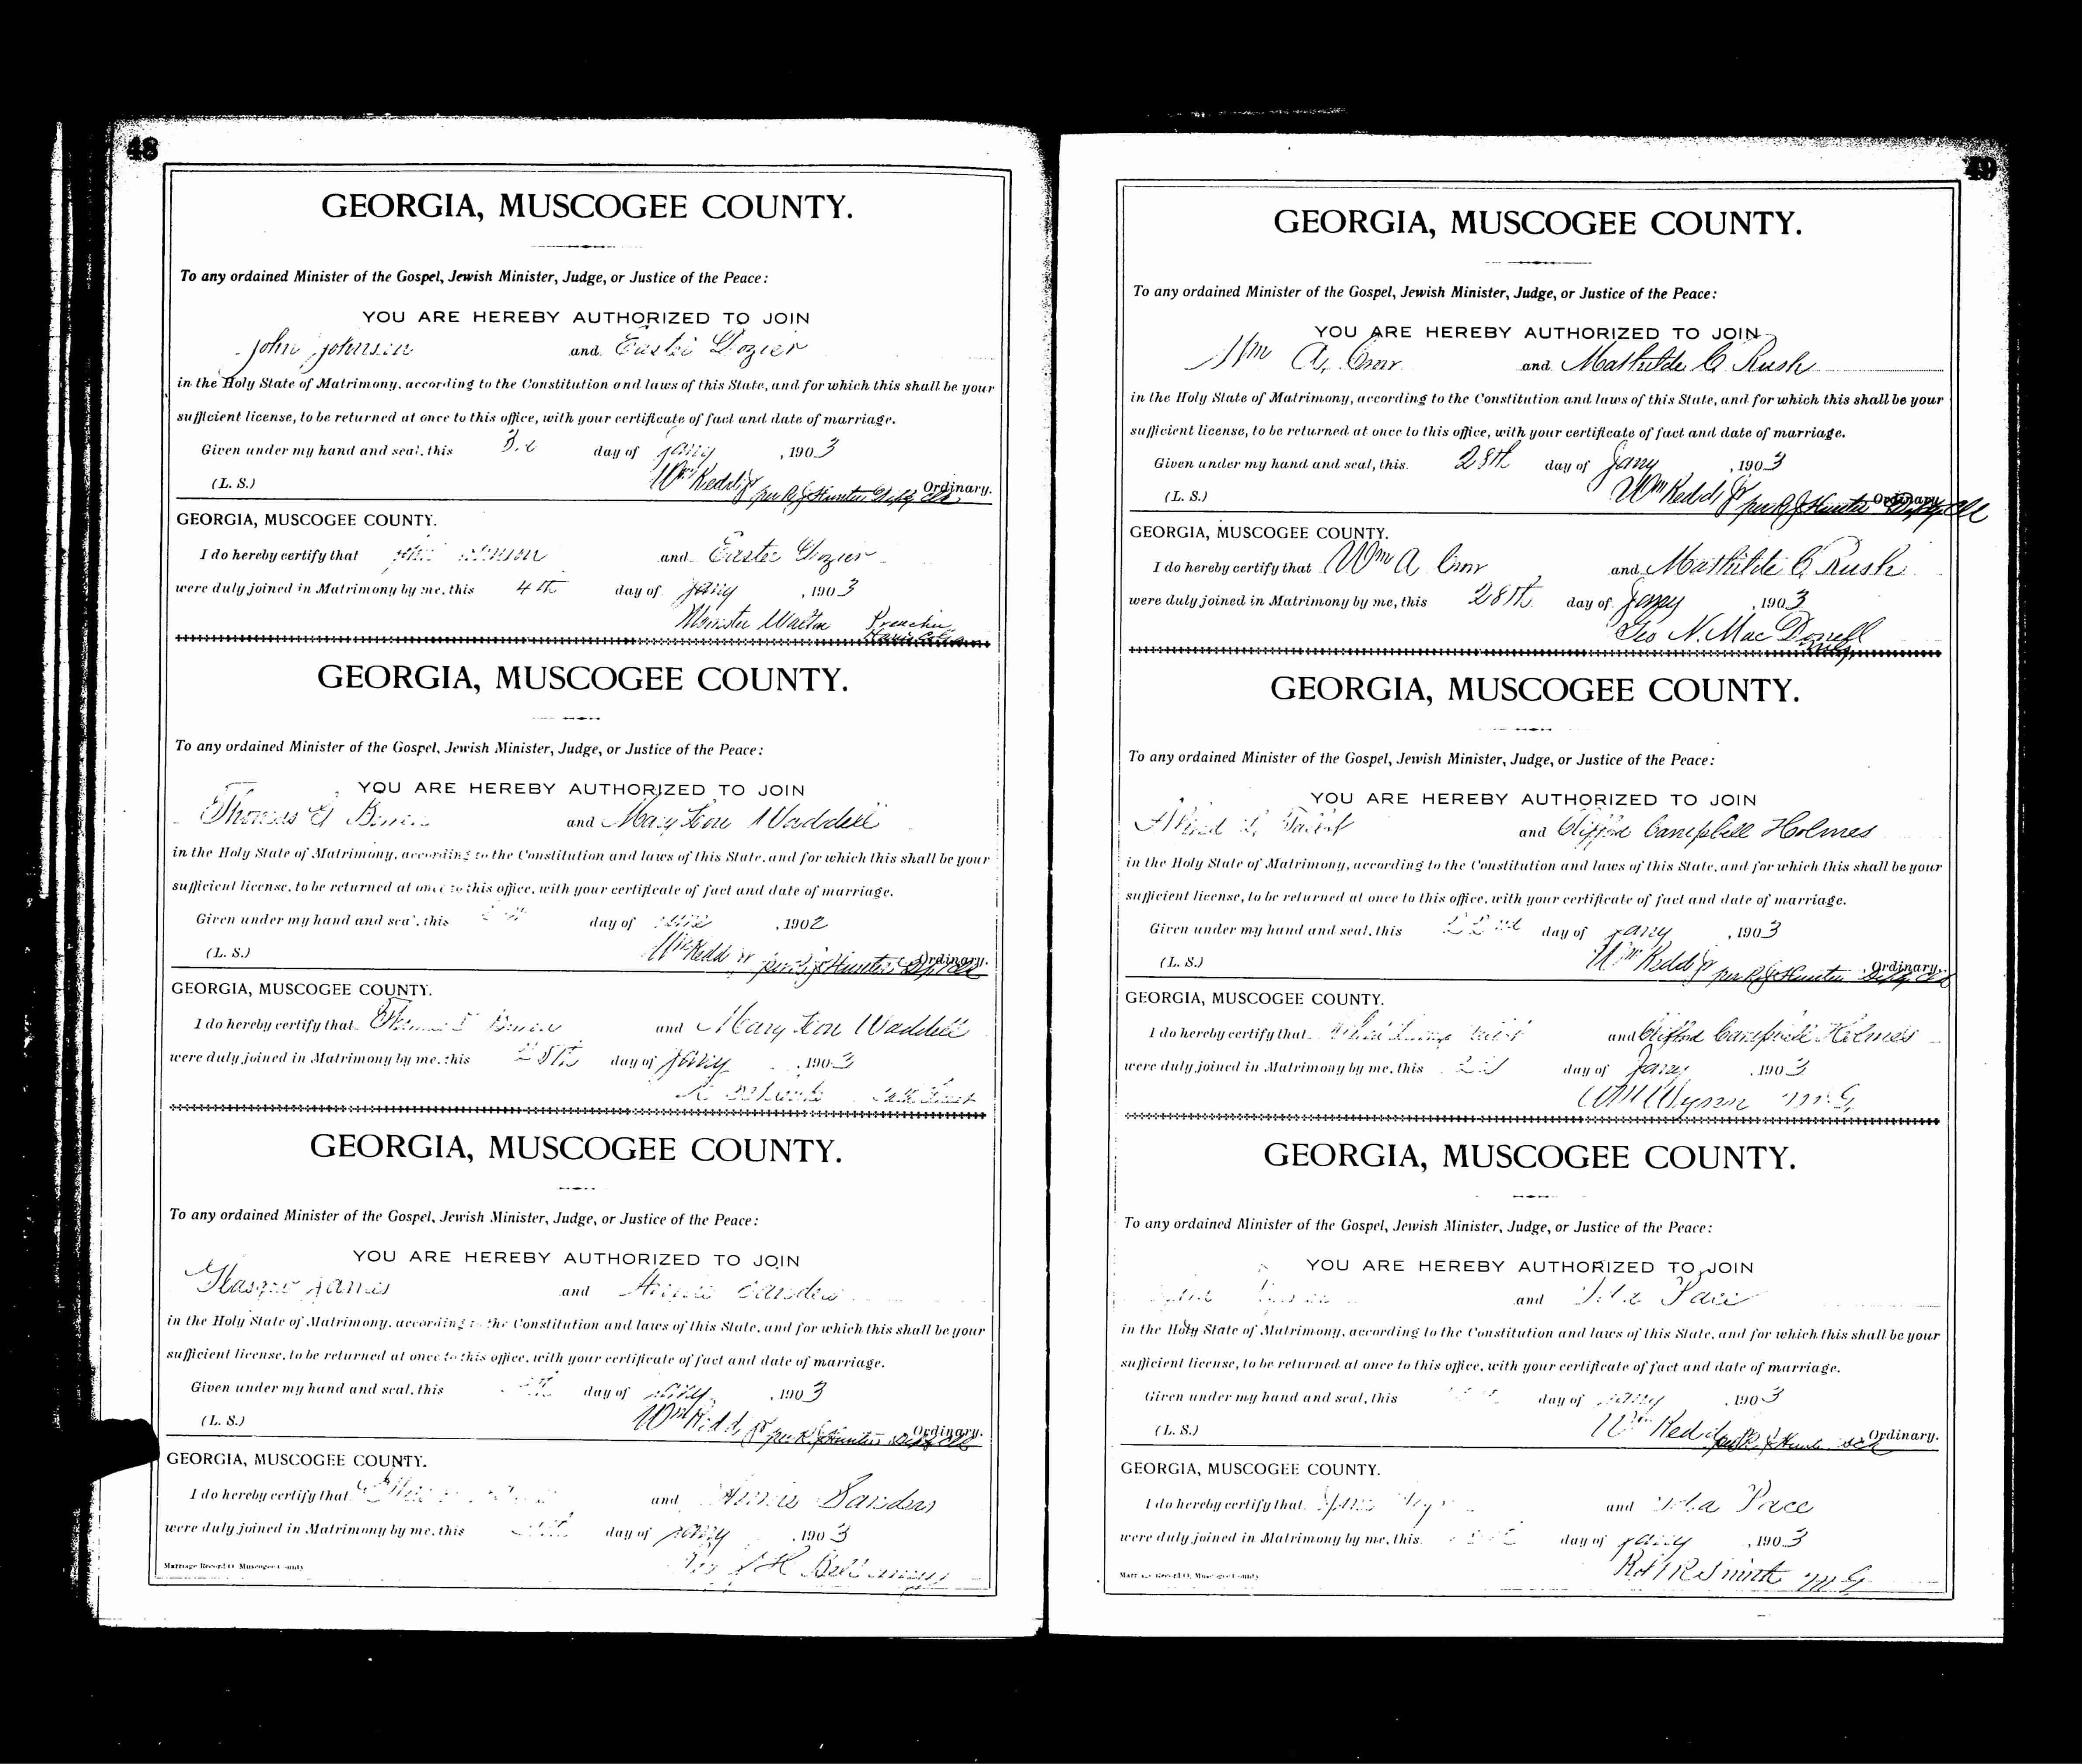 48
GEORGIA, MUSCOGEE COUNTY.
To any ordained Minister of the Gospel, Jewish Minister, Judge, or Justice of the Peace:
YOU ARE HEREBY AUTHORIZED TO JOIN
John Johnson and Eastie Dozier
in the Holy State of Matrimony, according to the Constitution and laws of this State, and for which this shall be your
sufficient license, to be returned at once to this office, with your certificate of fact and date of marriage.
Given under my hand and seal, this 3d day of Jany, 1903
(L. S.) Wm Redd Jr per R J Hunter Dpty Clk Ordinary.
GEORGIA, MUSCOGEE COUNTY.
I do hereby certify that John Johnson and Eastie Dozier
were duly joined in Matrimony by me, this 4th day of Jany, 1903
Preacher
GEORGIA, MUSCOGEE COUNTY.
To any ordained Minister of the Gospel, Jewish Minister, Judge, or Justice of the Peace:
YOU ARE HEREBY AUTHORIZED TO JOIN
Thomas and Mary Leon Waddell
in the Holy State of Matrimony, according to the Constitution and laws of this State, and for which this shall be your
sufficient license, to be returned at once to this office, with your certificate of fact and date of marriage.
Given under my hand and seal, this day of, 1902
(L. S.) Wm Redd Jr per R J Hunter Dpty Clk Ordinary.
GEORGIA, MUSCOGEE COUNTY.
I do hereby certify that Thomas and Mary Leon Waddell
were duly joined in Matrimony by me, this 28th day of Jany, 1903
GEORGIA, MUSCOGEE COUNTY.
To any ordained Minister of the Gospel, Jewish Minister, Judge, or Justice of the Peace:
YOU ARE HEREBY AUTHORIZED TO JOIN
Glasgow James and Annie Sanders
in the Holy State of Matrimony, according to the Constitution and laws of this State, and for which this shall be your
sufficient license, to be returned at once to this office, with your certificate of fact and date of marriage.
Given under my hand and seal, this day of Jany, 1903
(L. S.) Wm Redd Jr per R J Hunter Dpty Clk Ordinary.
GEORGIA, MUSCOGEE COUNTY.
I do hereby certify that and Annie Sanders
were duly joined in Matrimony by me, this day of Jany, 1903
Marriage Record O, Muscogee County
49
GEORGIA, MUSCOGEE COUNTY.
To any ordained Minister of the Gospel, Jewish Minister, Judge, or Justice of the Peace:
YOU ARE HEREBY AUTHORIZED TO JOIN
Wm A. and Mathilde C Rush
in the Holy State of Matrimony, according to the Constitution and laws of this State, and for which this shall be your
sufficient license, to be returned at once to this office, with your certificate of fact and date of marriage.
Given under my hand and seal, this 28th day of Jany, 1903
(L. S.) Wm Redd Jr per R J Hunter Dpty Clk Ordinary
GEORGIA, MUSCOGEE COUNTY.
I do hereby certify that Wm A and Mathilde C Rush
were duly joined in Matrimony by me, this 28th day of Jany, 1903
Geo N. MacDonell
GEORGIA, MUSCOGEE COUNTY.
To any ordained Minister of the Gospel, Jewish Minister, Judge, or Justice of the Peace:
YOU ARE HEREBY AUTHORIZED TO JOIN
and Clifford Campbell Holmes
in the Holy State of Matrimony, according to the Constitution and laws of this State, and for which this shall be your
sufficient license, to be returned at once to this office, with your certificate of fact and date of marriage.
Given under my hand and seal, this 22nd day of Jany, 1903
(L. S.) Wm Redd Jr per R J Hunter Dpty Clk Ordinary.
GEORGIA, MUSCOGEE COUNTY.
I do hereby certify that and Clifford Campbell Holmes
were duly joined in Matrimony by me, this day of Jany, 1903
M.G.
GEORGIA, MUSCOGEE COUNTY.
To any ordained Minister of the Gospel, Jewish Minister, Judge, or Justice of the Peace:
YOU ARE HEREBY AUTHORIZED TO JOIN
and Pace
in the Holy State of Matrimony, according to the Constitution and laws of this State, and for which this shall be your
sufficient license, to be returned at once to this office, with your certificate of fact and date of marriage.
Given under my hand and seal, this day of Jany, 1903
(L. S.) Wm Redd Jr per R J Hunter Ordinary.
GEORGIA, MUSCOGEE COUNTY.
I do hereby certify that and Pace
were duly joined in Matrimony by me, this day of Jany, 1903
Robt R Smith M G
Marriage Record O, Muscogee County